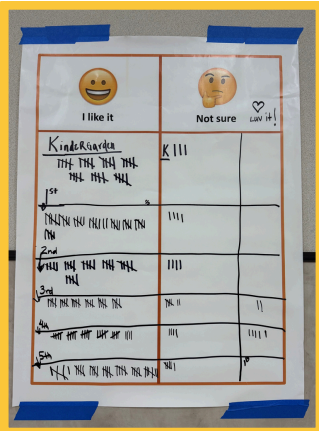 I like it
Not sure
Luv it!
Kindergarden
K
1st
2nd
3rd
4th
5th